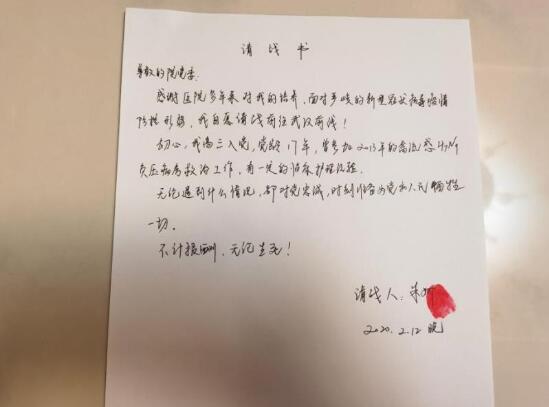 请战书
尊敬的院党委:
感谢医院多年来对我的培养,面对严峻的新型冠状病毒疫情
防控形势,我自愿请战前往武汉前线!
初心,我高三入党,党龄17年,曾参加2013年的禽流感H7N9
负压病房救治工作,有一定的临床护理经验。
无论遇到什么情况,都对党忠诚,时刻准备为党和人民牺牲
一切。
不计报酬、无论生死!
请战人:朱
2020.2.12晚